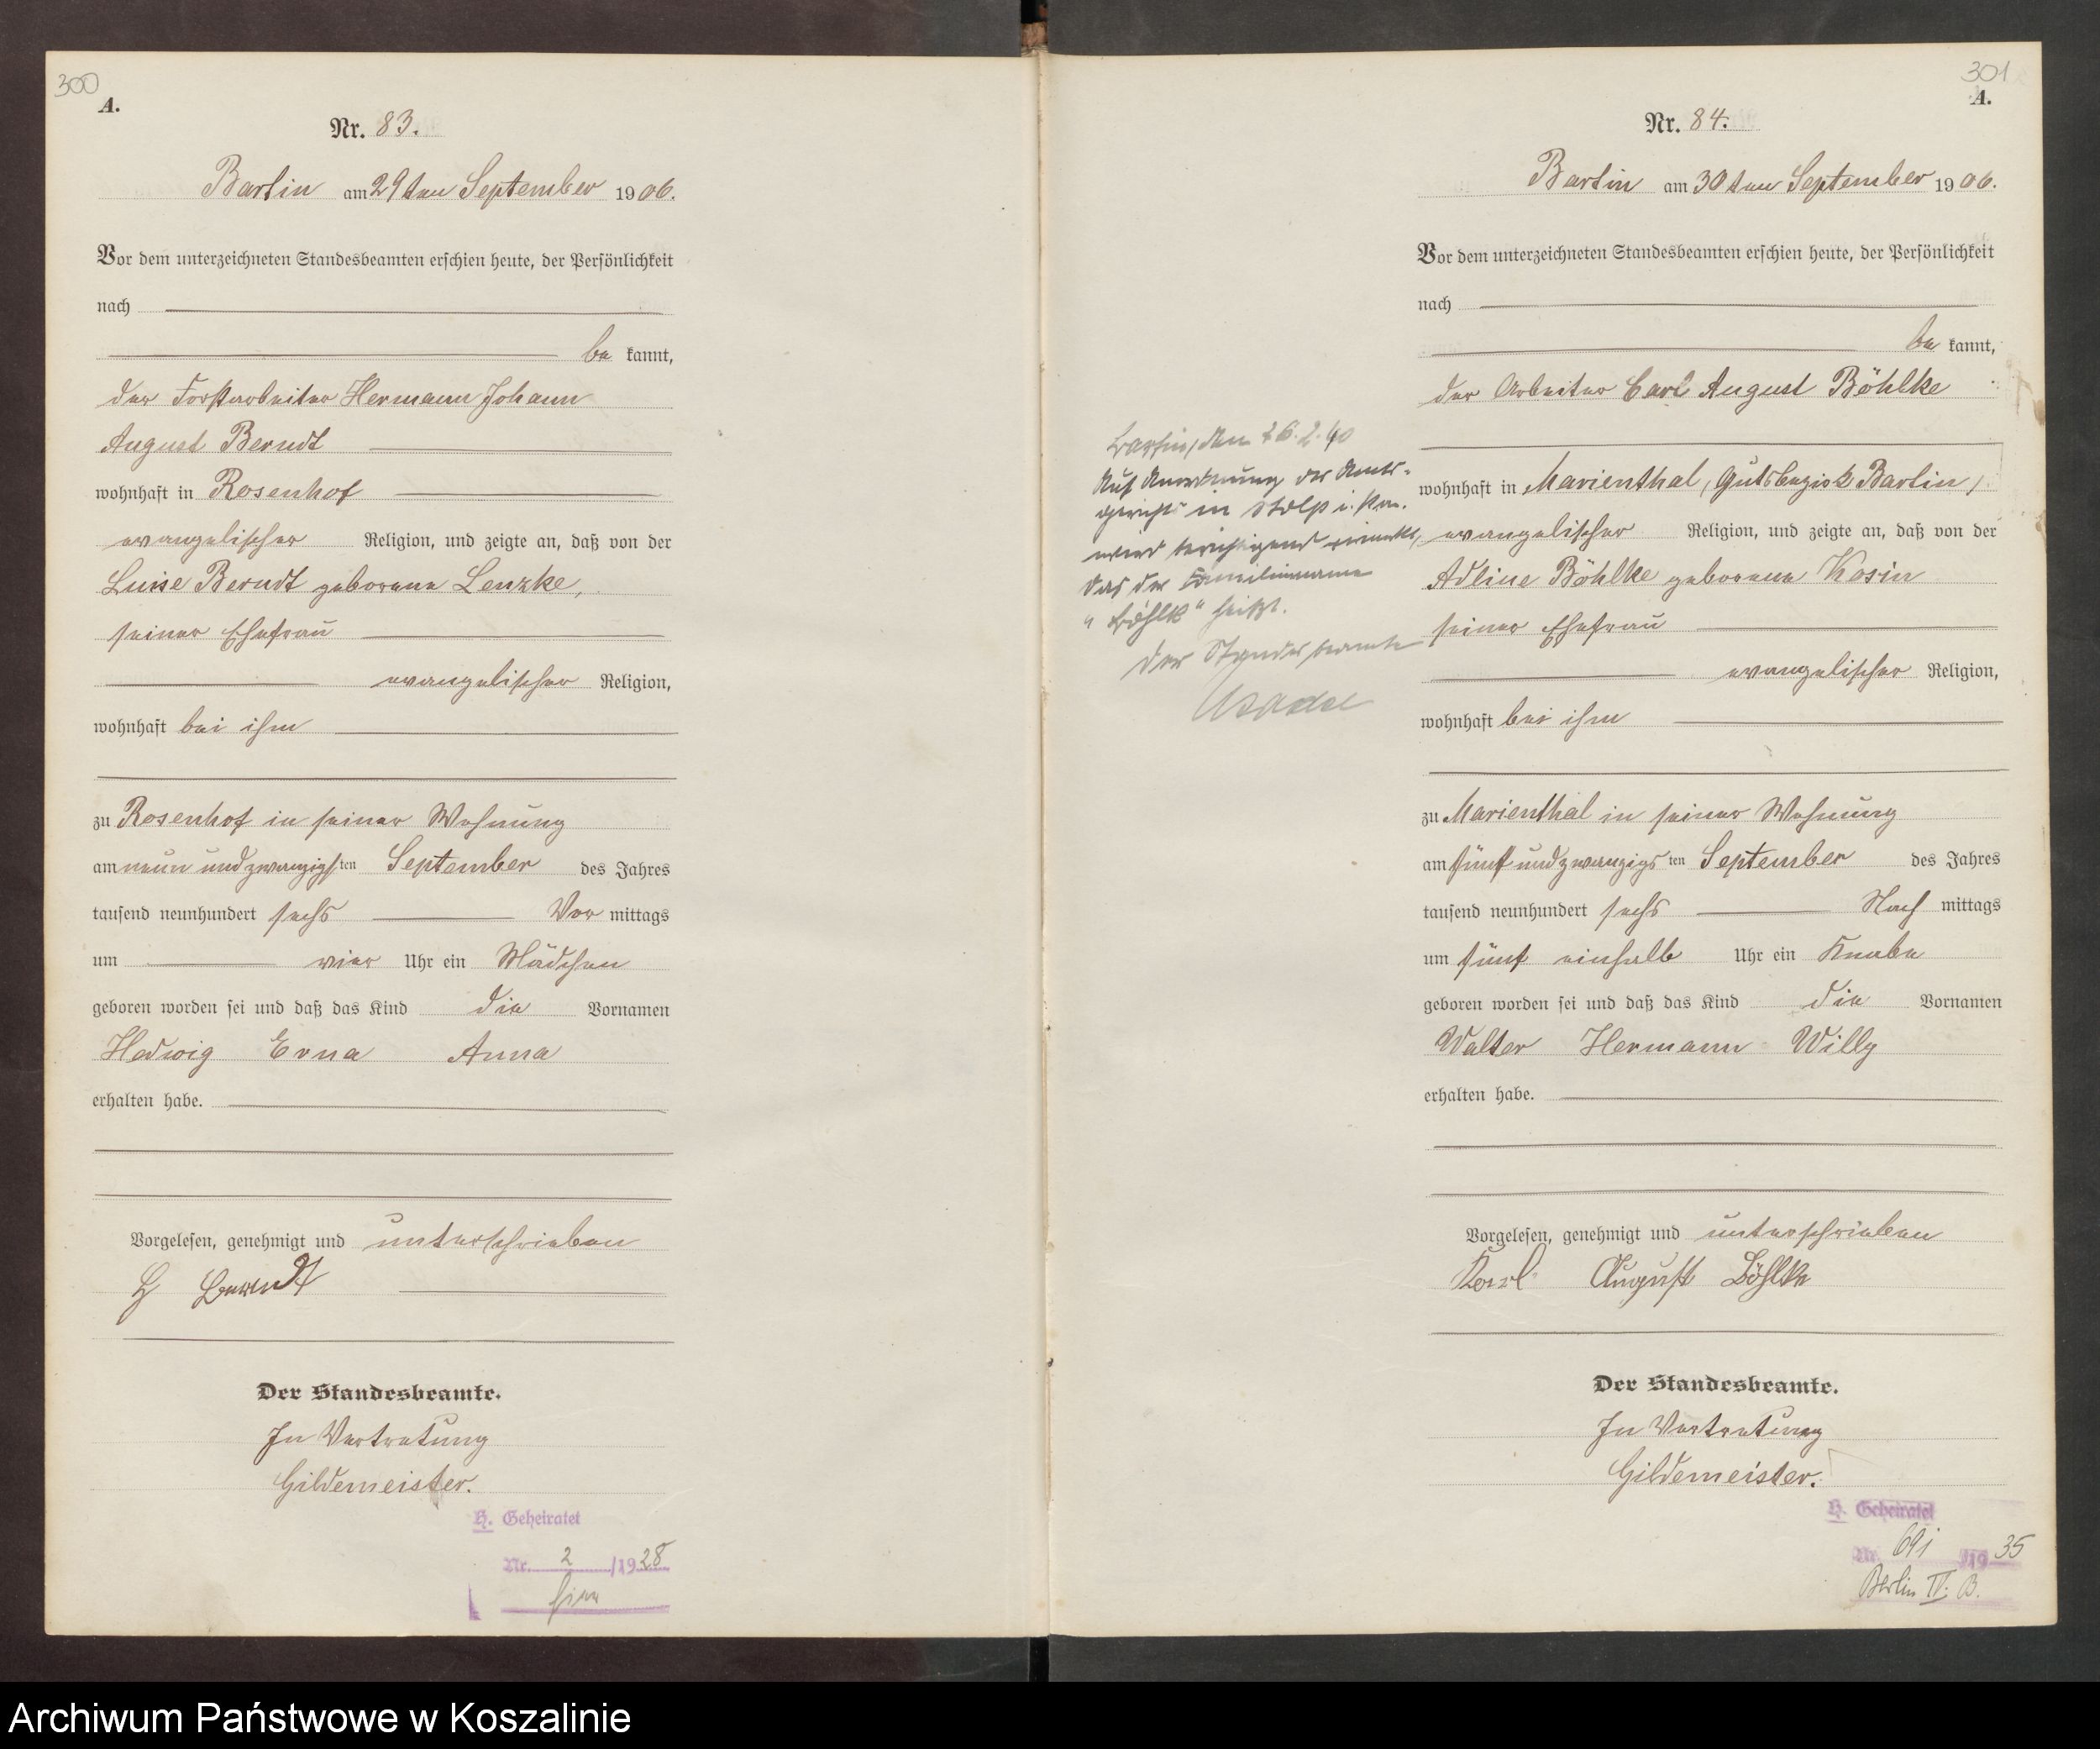 300
A.
Nr. 83.
Bartin am 29 ten September 1906.
Vor dem unterzeichneten Standesbeamten erschien heute, der Persönlichkeit
nach
be kannt,
der Forstarbeiter Hermann Johann
August Berndt
wohnhaft in Rosenhof
evangelischer Religion, und zeigte an, daß von der
Luise Berndt geborene Lenzke,
seiner Ehefrau
evangelischer Religion,
wohnhaft bei ihm
zu Rosenhof in seiner Wohnung
am neun und zwanzigsten September des Jahres
tausend neunhundert sechs Vor mittags
um vier Uhr ein Mädchen
geboren worden sei und daß das Kind die Vornamen
Hedwig Erna Anna
erhalten habe.
Vorgelesen, genehmigt und unterschrieben
H Berndt
Der Standesbeamte.
In Vertretung
Gildemeister.
H. Geheiratet
Nr. 2 /1928
hier
301
A.
Nr. 84.
Bartin am 30 ten September 1906.
Vor dem unterzeichneten Standesbeamten erschien heute, der Persönlichkeit
nach
be kannt,
der Arbeiter Carl August Böhlke
wohnhaft in Marienthal, Gutsbezirk Bartin,
evangelischer Religion, und zeigte an, daß von der
Adline Böhlke geborene Kosin
seiner Ehefrau
evangelischer Religion,
wohnhaft bei ihm
zu Marienthal in seiner Wohnung
am fünf und zwanzigs ten September des Jahres
tausend neunhundert sechs Nach mittags
um fünf einhalb Uhr ein Knabe
geboren worden sei und daß das Kind die Vornamen
Walter Hermann Willy
erhalten habe.
Vorgelesen, genehmigt und unterschrieben
Karl August Böhlke
Der Standesbeamte.
In Vertretung
Gildemeister.
H. Geheiratet
Nr. 691 /1935
Berlin IV. B.
Bartin, den 26.2.40
Auf Anordnung des Amts-
gerichts in Stolp i. Pom.
wird berichtigend vermerkt,
das der Familienname
"Böhlk" heißt.
Der Standesbeamte
Archiwum Państwowe w Koszalinie